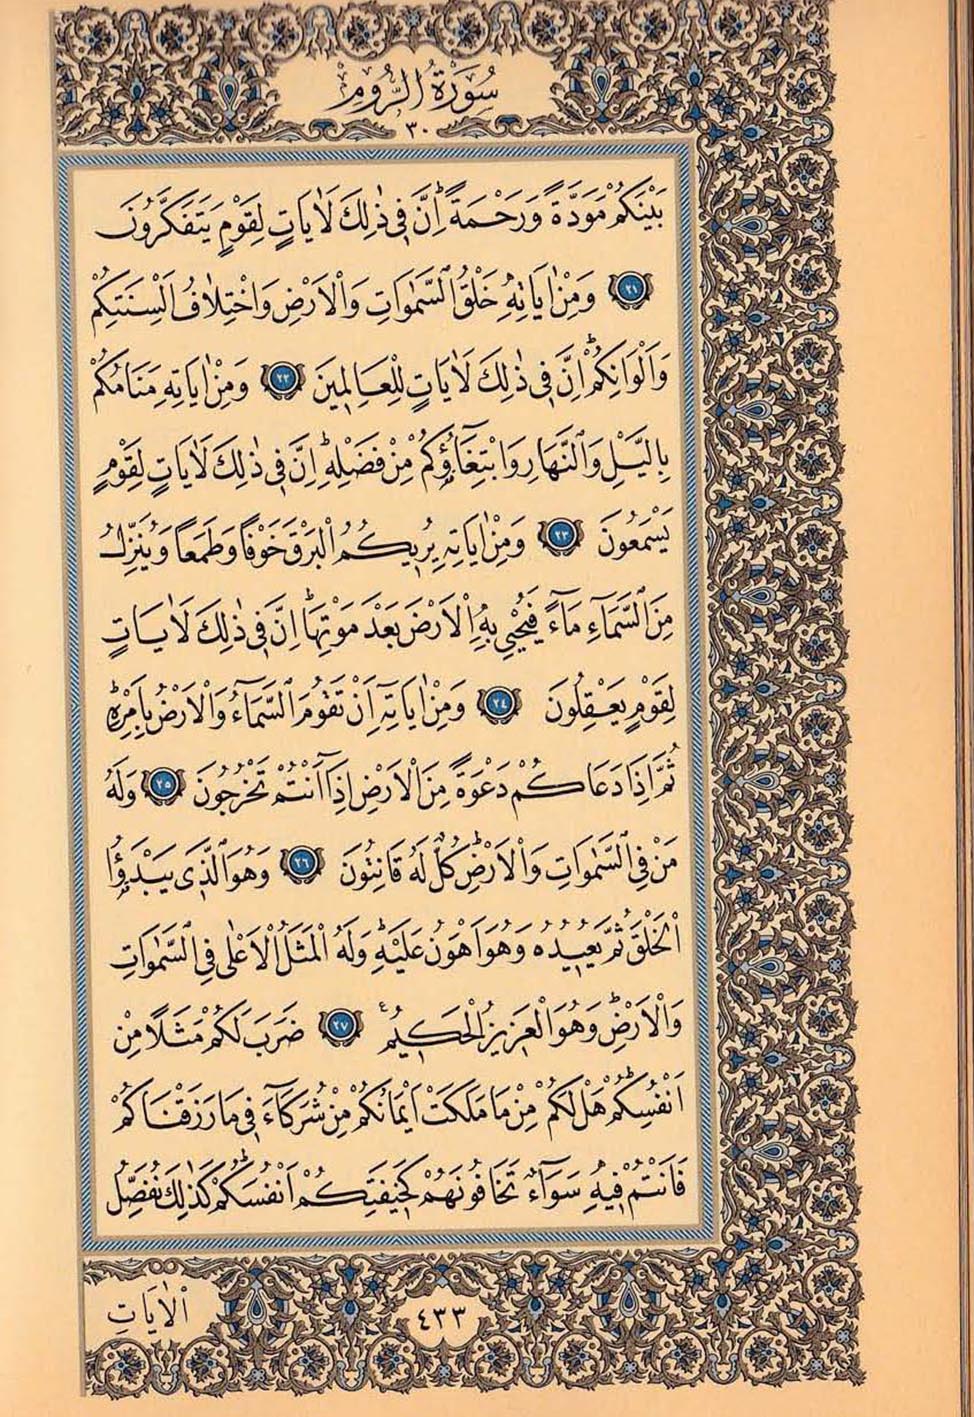 سُورَةُ الرُّومِ
٣٠
بَيْنَكُمْ مَوَدَّةً وَرَحْمَةًۜ اِنَّ ف۪ي ذٰلِكَ لَاٰيَاتٍ لِقَوْمٍ يَتَفَكَّرُونَ
﴿٢١﴾ وَمِنْ اٰيَاتِه۪ خَلْقُ السَّمٰوَاتِ وَالْاَرْضِ وَاخْتِلَافُ اَلْسِنَتِكُمْ
وَاَلْوَانِكُمْۜ اِنَّ ف۪ي ذٰلِكَ لَاٰيَاتٍ لِلْعَالِم۪ينَ ﴿٢٢﴾ وَمِنْ اٰيَاتِه۪ مَنَامُكُمْ
بِالَّيْلِ وَالنَّهَارِ وَابْتِغَٓاؤُ۬كُمْ مِنْ فَضْلِه۪ۜ اِنَّ ف۪ي ذٰلِكَ لَاٰيَاتٍ لِقَوْمٍ
يَسْمَعُونَ ﴿٢٣﴾ وَمِنْ اٰيَاتِه۪ يُر۪يكُمُ الْبَرْقَ خَوْفًا وَطَمَعًا وَيُنَزِّلُ
مِنَ السَّمَٓاءِ مَٓاءً فَيُحْي۪ بِهِ الْاَرْضَ بَعْدَ مَوْتِهَاۜ اِنَّ ف۪ي ذٰلِكَ لَاٰيَاتٍ
لِقَوْمٍ يَعْقِلُونَ ﴿٢٤﴾ وَمِنْ اٰيَاتِه۪ٓ اَنْ تَقُومَ السَّمَٓاءُ وَالْاَرْضُ بِاَمْرِه۪ۜ
ثُمَّ اِذَا دَعَاكُمْ دَعْوَةً مِنَ الْاَرْضِ اِذَٓا اَنْتُمْ تَخْرُجُونَ ﴿٢٥﴾ وَلَهُ
مَنْ فِي السَّمٰوَاتِ وَالْاَرْضِۜ كُلٌّ لَهُ قَانِتُونَ ﴿٢٦﴾ وَهُوَ الَّذ۪ي يَبْدَؤُ۬ا
الْخَلْقَ ثُمَّ يُع۪يدُهُ وَهُوَ اَهْوَنُ عَلَيْهِۜ وَلَهُ الْمَثَلُ الْاَعْلٰى فِي السَّمٰوَاتِ
وَالْاَرْضِۚ وَهُوَ الْعَز۪يزُ الْحَك۪يمُ۟ ﴿٢٧﴾ ضَرَبَ لَكُمْ مَثَلًا مِنْ
اَنْفُسِكُمْۜ هَلْ لَكُمْ مِنْ مَا مَلَكَتْ اَيْمَانُكُمْ مِنْ شُرَكَٓاءَ ف۪ي مَا رَزَقْنَاكُمْ
فَاَنْتُمْ ف۪يهِ سَوَٓاءٌ تَخَافُونَهُمْ كَخ۪يفَتِكُمْ اَنْفُسَكُمْۜ كَذٰلِكَ نُفَصِّلُ
٤٣٣
الْاٰيَاتِ